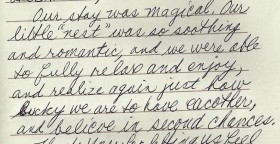 Our stay was magical. Our
little "nest" was so soothing
and romantic, and we were able
to fully relax and enjoy,
and realize again just how
lucky we are to have eachother,
and believe in second chances.